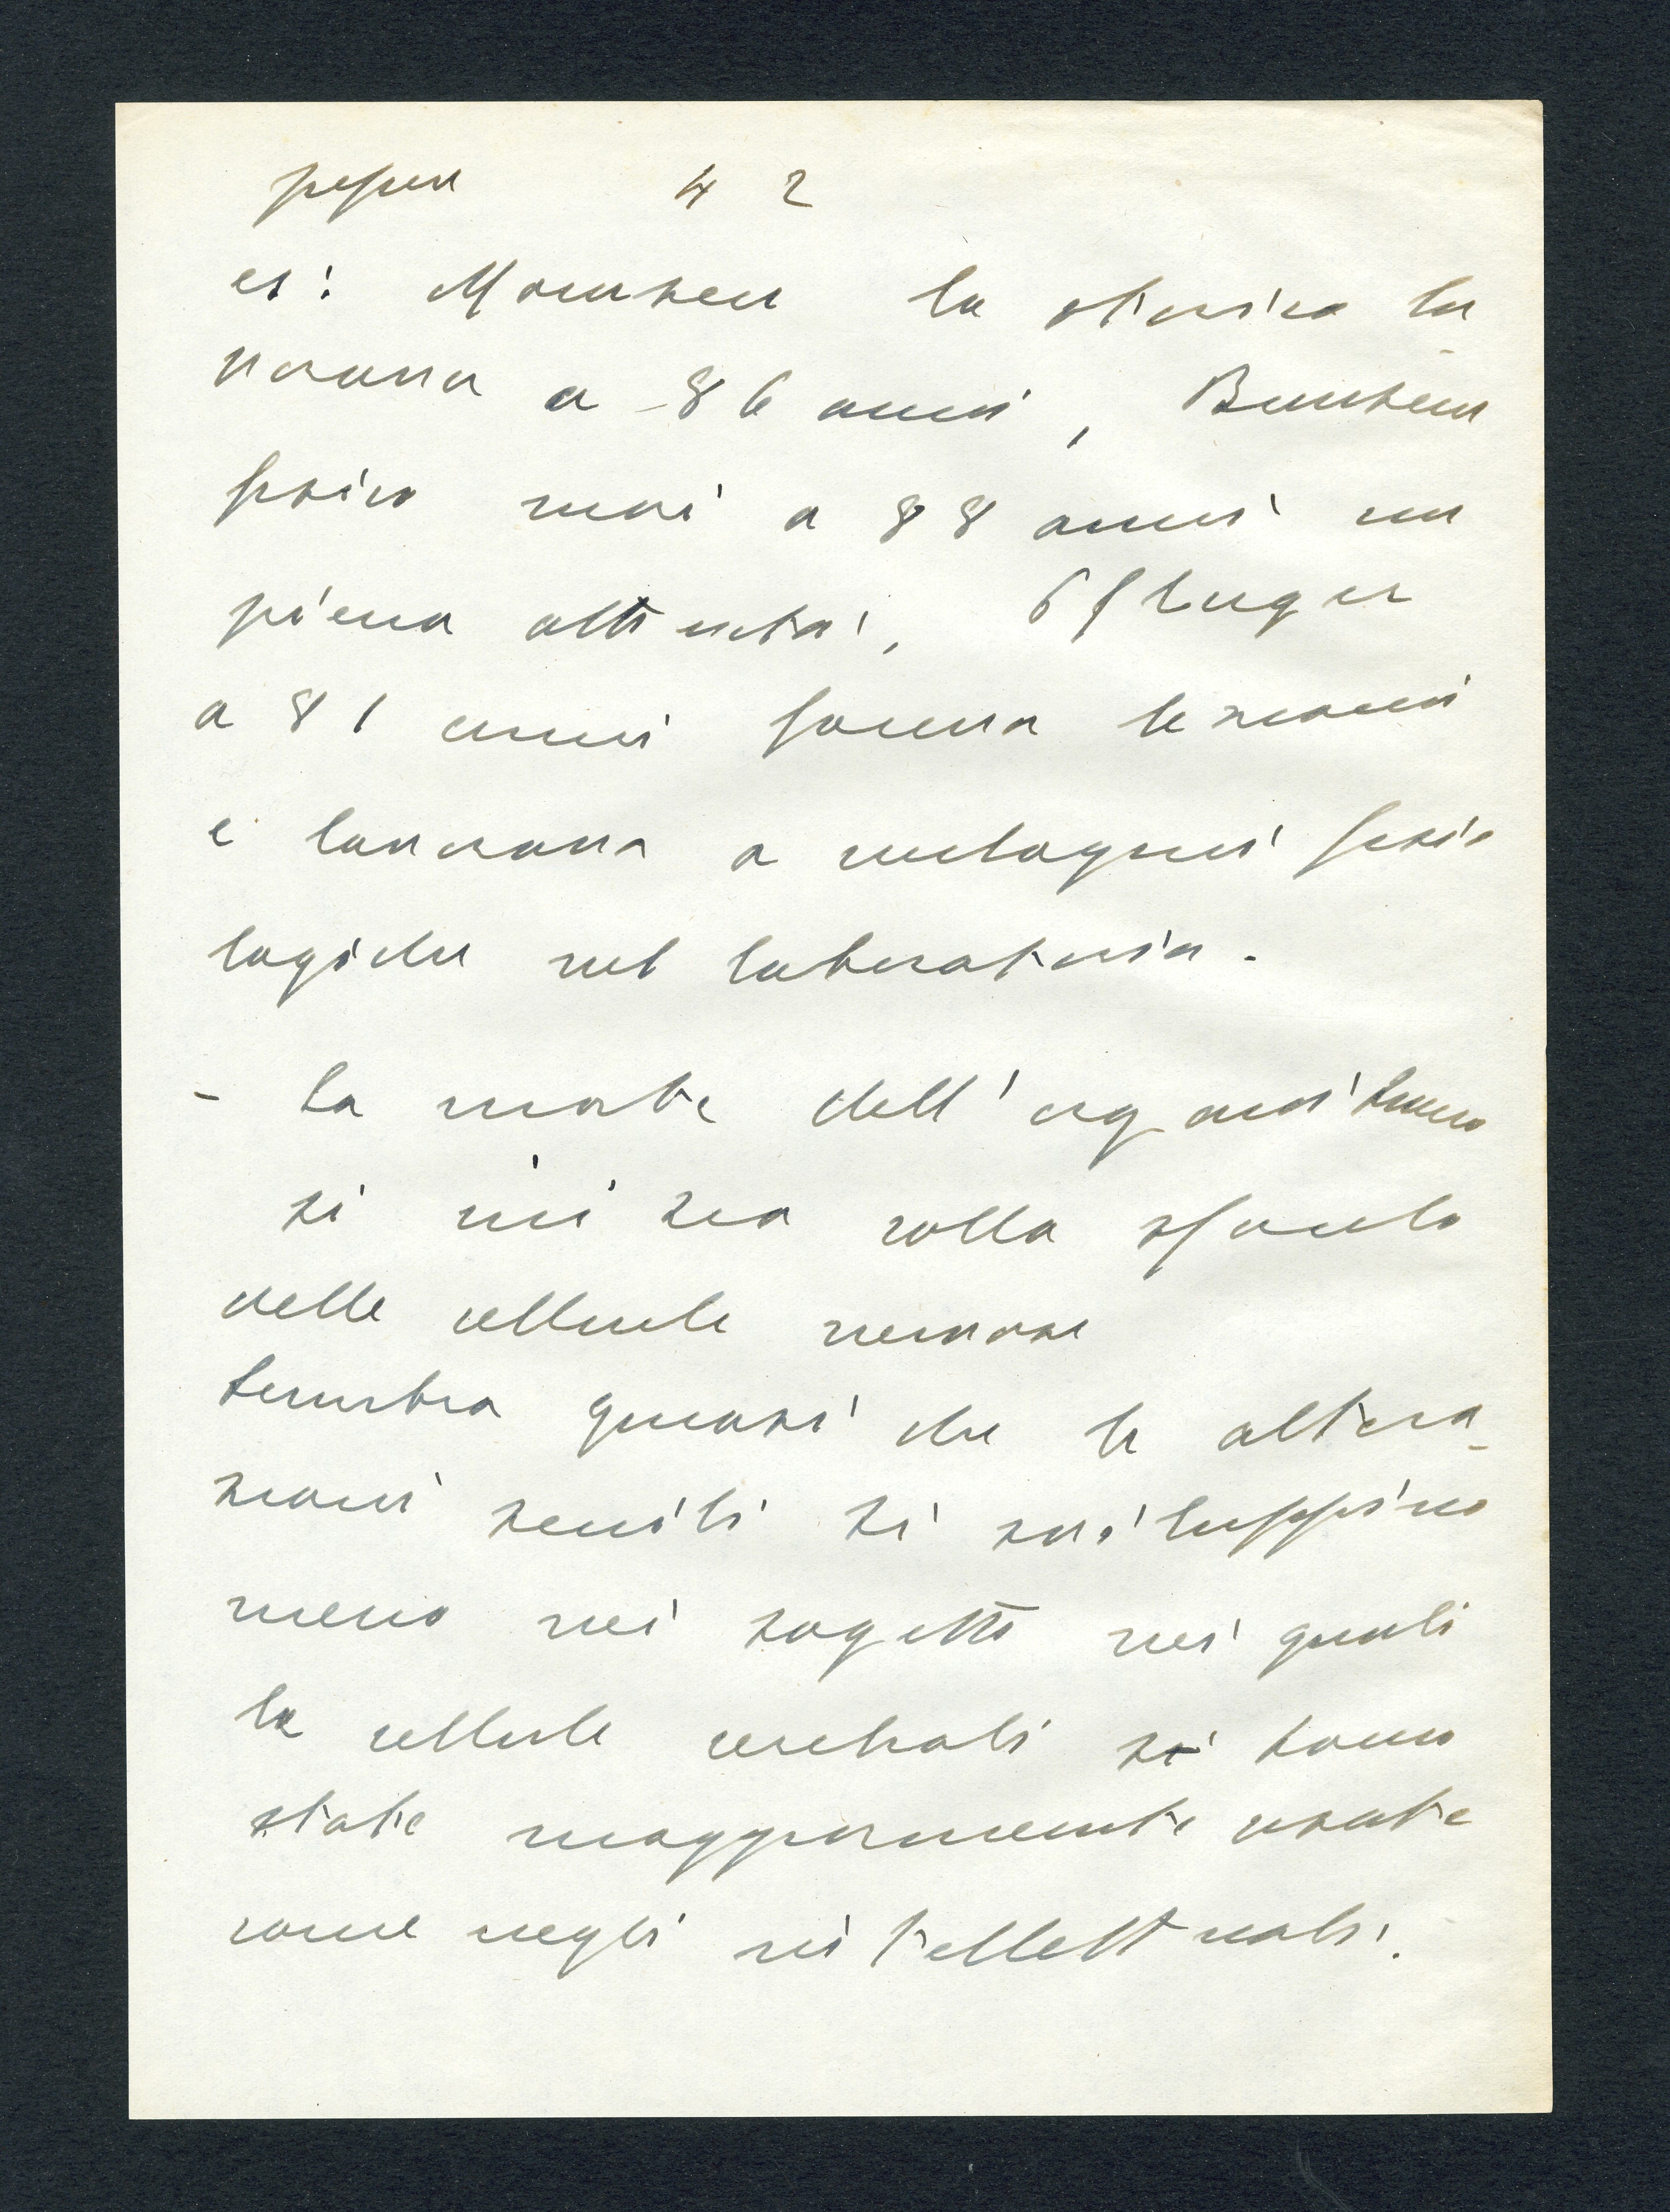 42
es: Mommsen lo storico la-
vorava a 86 anni, Bunsen
fisico morì a 88 anni in
piena attività, Pfluger
a 81 anni faceva lezioni
e lavorava a indagini fisio
logiche nel laboratorio.
- La morte dell'organismo
si inizia colla sfacelo
delle cellule nervose
Sembra quasi che le altera-
zioni senili si sviluppino
meno nei sogetti nei quali
le cellule cerebrali si sono
state maggiormente usate
come negli intellettuali.